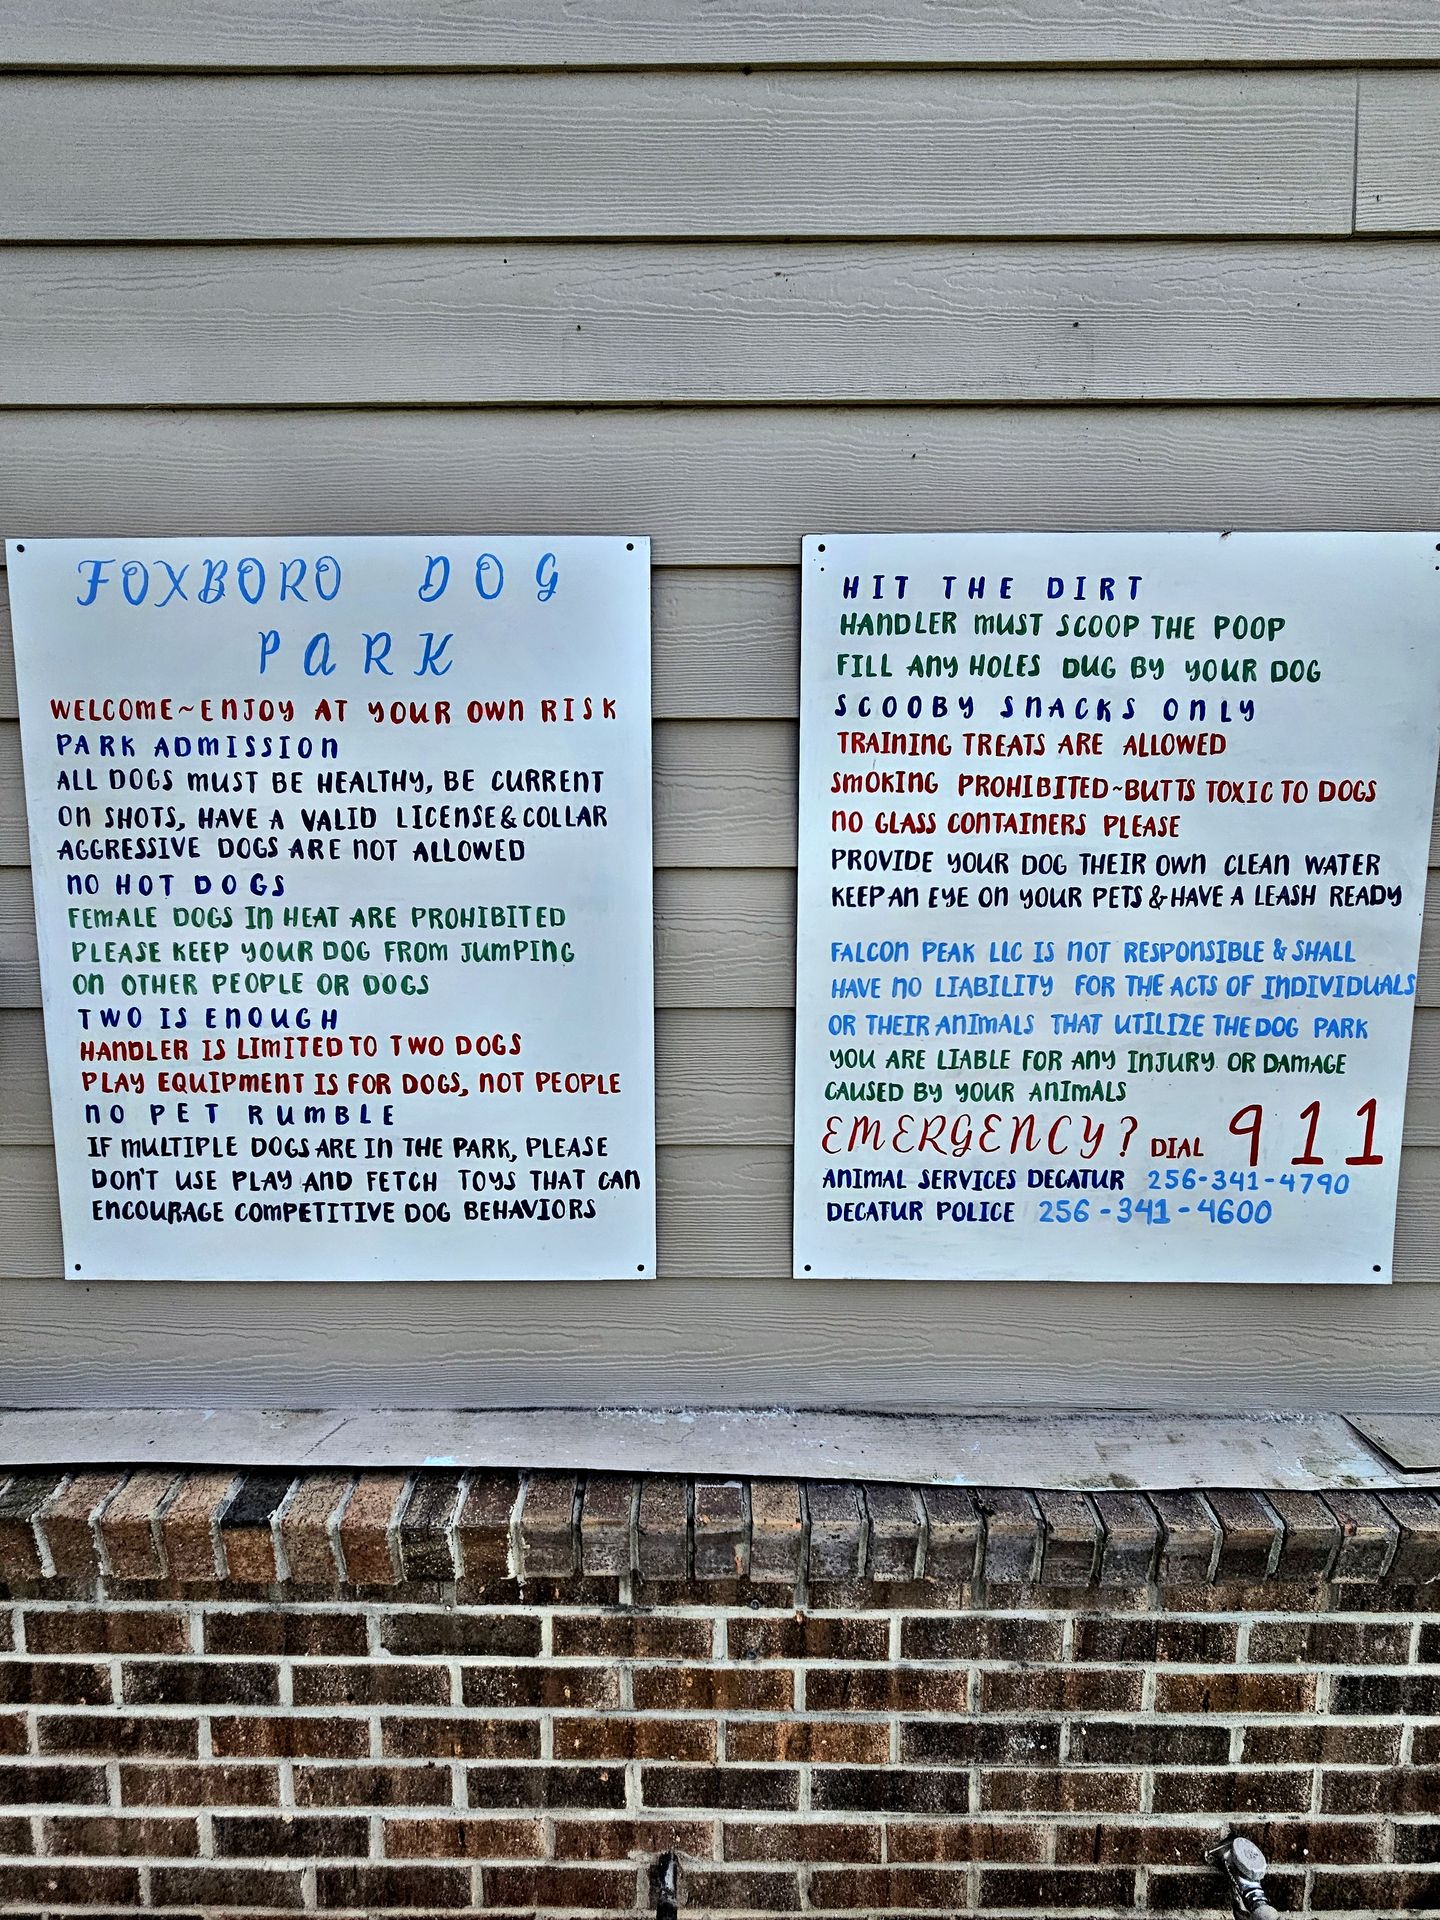 FOXBORO DOG
PARK
WELCOME~ENJOY AT YOUR OWN RISK
PARK ADMISSION
ALL DOGS MUST BE HEALTHY, BE CURRENT
ON SHOTS, HAVE A VALID LICENSE & COLLAR
AGGRESSIVE DOGS ARE NOT ALLOWED
NO HOT DOGS
FEMALE DOGS IN HEAT ARE PROHIBITED
PLEASE KEEP YOUR DOG FROM JUMPING
ON OTHER PEOPLE OR DOGS
TWO IS ENOUGH
HANDLER IS LIMITED TO TWO DOGS
PLAY EQUIPMENT IS FOR DOGS, NOT PEOPLE
NO PET RUMBLE
IF MULTIPLE DOGS ARE IN THE PARK, PLEASE
DON'T USE PLAY AND FETCH TOYS THAT CAN
ENCOURAGE COMPETITIVE DOG BEHAVIORS
HIT THE DIRT
HANDLER MUST SCOOP THE POOP
FILL ANY HOLES DUG BY YOUR DOG
SCOOBY SNACKS ONLY
TRAINING TREATS ARE ALLOWED
SMOKING PROHIBITED~BUTTS TOXIC TO DOGS
NO GLASS CONTAINERS PLEASE
PROVIDE YOUR DOG THEIR OWN CLEAN WATER
KEEP AN EYE ON YOUR PETS & HAVE A LEASH READY
FALCON PEAK LLC IS NOT RESPONSIBLE & SHALL
HAVE NO LIABILITY FOR THE ACTS OF INDIVIDUALS
OR THEIR ANIMALS THAT UTILIZE THE DOG PARK
YOU ARE LIABLE FOR ANY INJURY OR DAMAGE
CAUSED BY YOUR ANIMALS
EMERGENCY? DIAL 911
ANIMAL SERVICES DECATUR 256-341-4790
DECATUR POLICE 256-341-4600